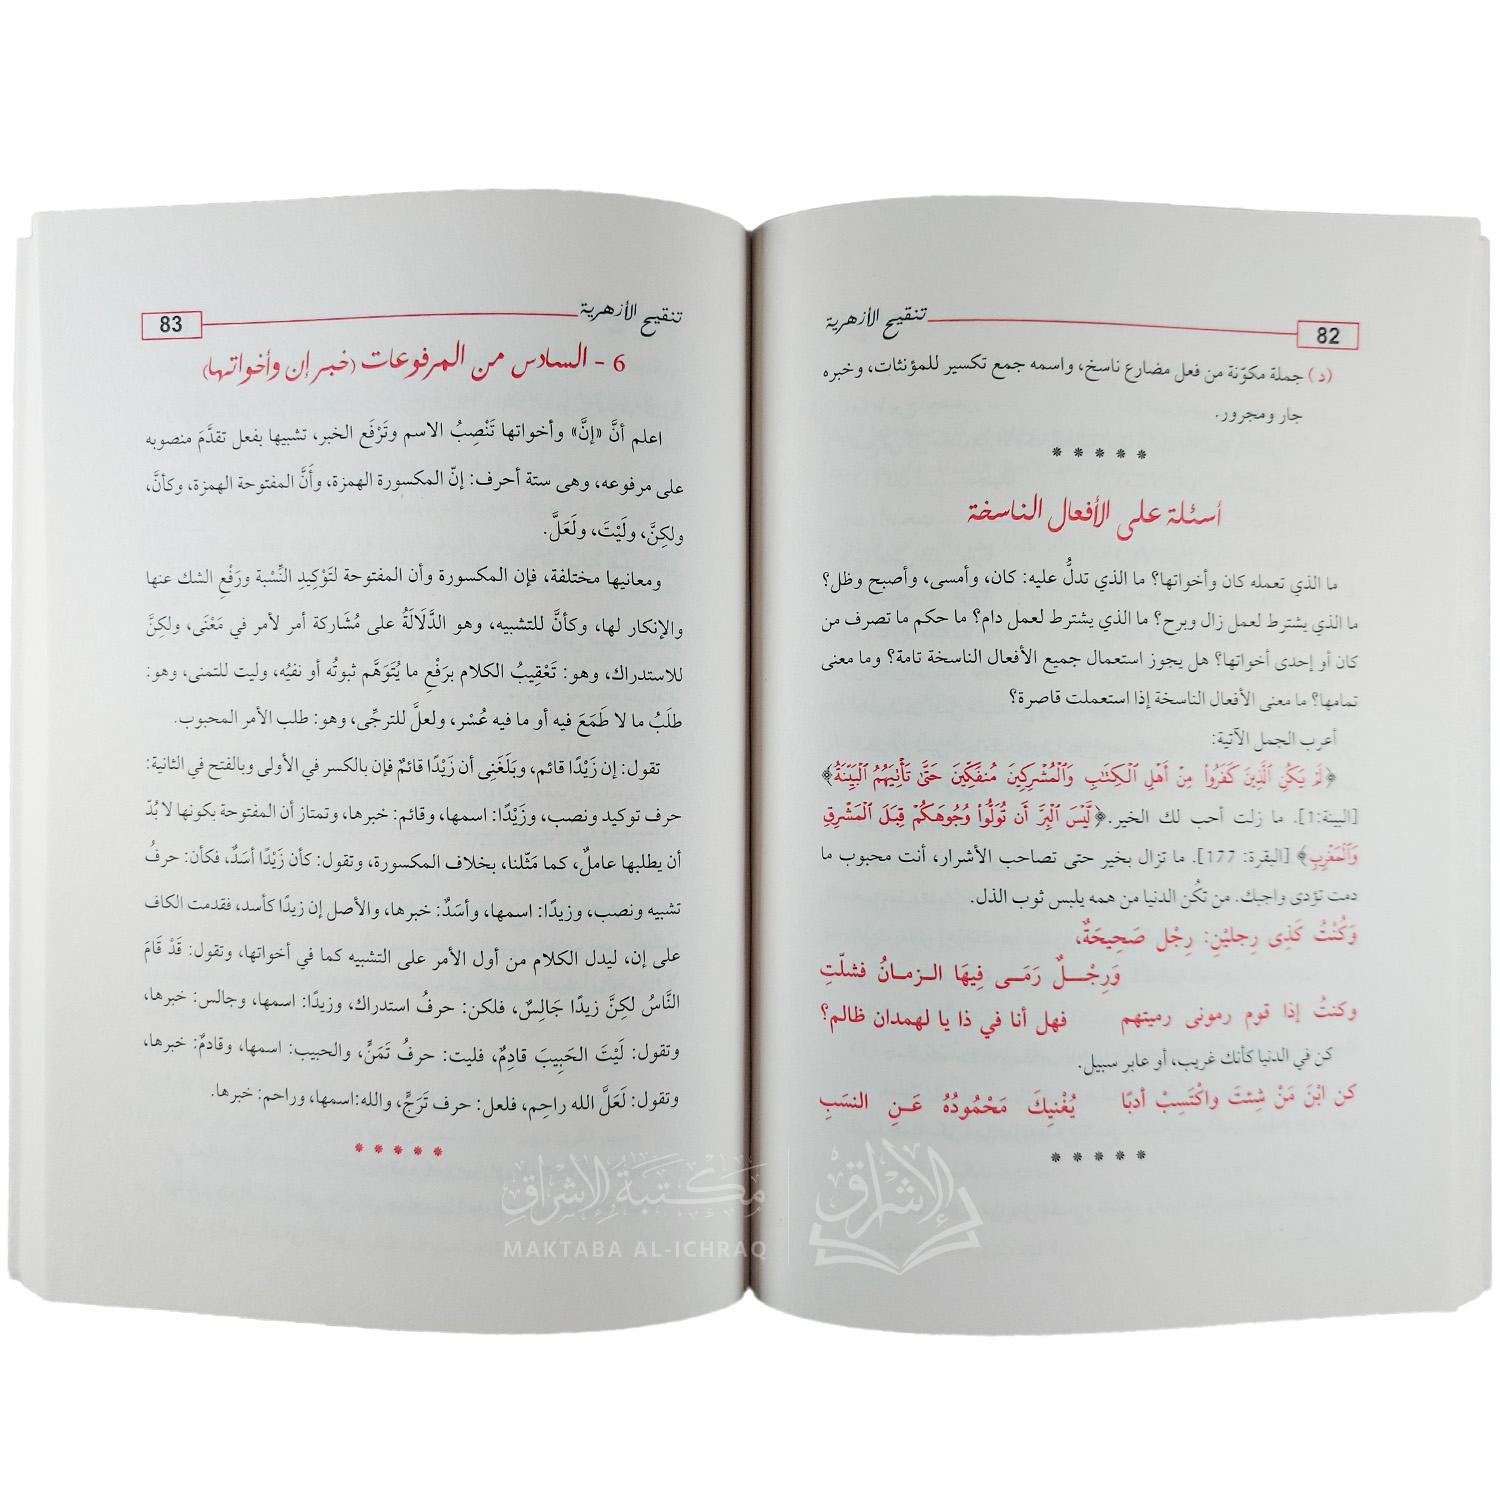 تنقيح الأزهرية
82
(د) جملة مكوّنة من فعل مضارع ناسخ، واسمه جمع تكسير للمؤنثات، وخبره
جار ومجرور.
* * * * *
أسئلة على الأفعال الناسخة
ما الذي تعمله كان وأخواتها؟ ما الذي تدلُّ عليه: كان، وأمسى، وأصبح وظل؟
ما الذي يشترط لعمل زال وبرح؟ ما الذي يشترط لعمل دام؟ ما حكم ما تصرف من
كان أو إحدى أخواتها؟ هل يجوز استعمال جميع الأفعال الناسخة تامة؟ وما معنى
تمامها؟ ما معنى الأفعال الناسخة إذا استعملت قاصرة؟
أعرب الجمل الآتية:
﴿لَمْ يَكُنِ ٱلَّذِينَ كَفَرُوا۟ مِنْ أَهْلِ ٱلْكِتَٰبِ وَٱلْمُشْرِكِينَ مُنفَكِّينَ حَتَّىٰ تَأْتِيَهُمُ ٱلْبَيِّنَةُ﴾
[البينة:1]. ما زلت أحب لك الخير. ﴿لَّيْسَ ٱلْبِرَّ أَن تُوَلُّوا۟ وُجُوهَكُمْ قِبَلَ ٱلْمَشْرِقِ
وَٱلْمَغْرِبِ﴾ [البقرة: 177]. ما تزال بخير حتى تصاحب الأشرار، أنت محبوب ما
دمت تؤدى واجبك. من تكُن الدنيا من همه يلبس ثوب الذل.
وَكُنْتُ كَذِى رِجليْنِ: رِجْل صَحِيحَةٌ،
وَرِجْـــلٌ رَمَــى فِيهَا الــزمـانُ فشلّتِ
وكنتُ إذا قوم رمونى رميتهم فهل أنا في ذا يا لهمدان ظالم؟
كن في الدنيا كأنك غريب، أو عابر سبيل.
كن ابْنَ مَنْ شِئتَ واكْتَسِبْ أدبًا يُغْنيكَ مَحْمُودُهُ عَــنِ النسَبِ
* * * * *
تنقيح الأزهرية
83
6 - السادس من المرفوعات (خبر إن وأخواتها)
اعلم أنَّ «إنَّ» وأخواتها تَنْصِبُ الاسم وتَرْفَع الخبر، تشبيها بفعل تقدَّمَ منصوبه
على مرفوعه، وهى ستة أحرف: إنّ المكسورة الهمزة، وأَنَّ المفتوحة الهمزة، وكأنَّ،
ولكِنَّ، ولَيْتَ، ولَعَلَّ.
ومعانيها مختلفة، فإن المكسورة وأن المفتوحة لتَوْكِيدِ النِّسْبة ورَفْعِ الشك عنها
والإنكار لها، وكأنَّ للتشبيه، وهو الدَّلَالَةُ على مُشَاركة أمر لأمر في مَعْنَى، ولكِنَّ
للاستدراك، وهو: تَعْقِيبُ الكلام برَفْعِ ما يُتَوَهَّم ثبوتُه أو نفيُه، وليت للتمنى، وهو:
طلَبُ ما لا طَمَعَ فيه أو ما فيه عُسْر، ولعلَّ للترجِّى، وهو: طلب الأمر المحبوب.
تقول: إن زَيْدًا قائم، وبَلَغَنِى أن زَيْدًا قائمٌ فإن بالكسر في الأولى وبالفتح في الثانية:
حرف توكيد ونصب، وزَيْدًا: اسمها، وقائم: خبرها، وتمتاز أن المفتوحة بكونها لا بُدّ
أن يطلبها عاملٌ، كما مَثّلنا، بخلاف المكسورة، وتقول: كأن زَيْدًا أسَدٌ، فكأن: حرفُ
تشبيه ونصب، وزيدًا: اسمها، وأسَدٌ: خبرها، والأصل إن زيدًا كأسد، فقدمت الكاف
على إن، ليدل الكلام من أول الأمر على التشبيه كما في أخواتها، وتقول: قَدْ قَامَ
النَّاسُ لكِنَّ زيدًا جَالِسٌ، فلكن: حرفُ استدراك، وزيدًا: اسمها، وجالس: خبرها،
وتقول: لَيْتَ الحَبِيبَ قادِمٌ، فليت: حرفُ تَمَنٍّ، والحبيب: اسمها، وقادمٌ: خبرها،
وتقول: لَعَلَّ الله راحِم، فلعل: حرف تَرَجٍّ، والله:اسمها، وراحم: خبرها.
* * * * *
مكتبة الإشراق
MAKTABA AL-ICHRAQ
الإشراق